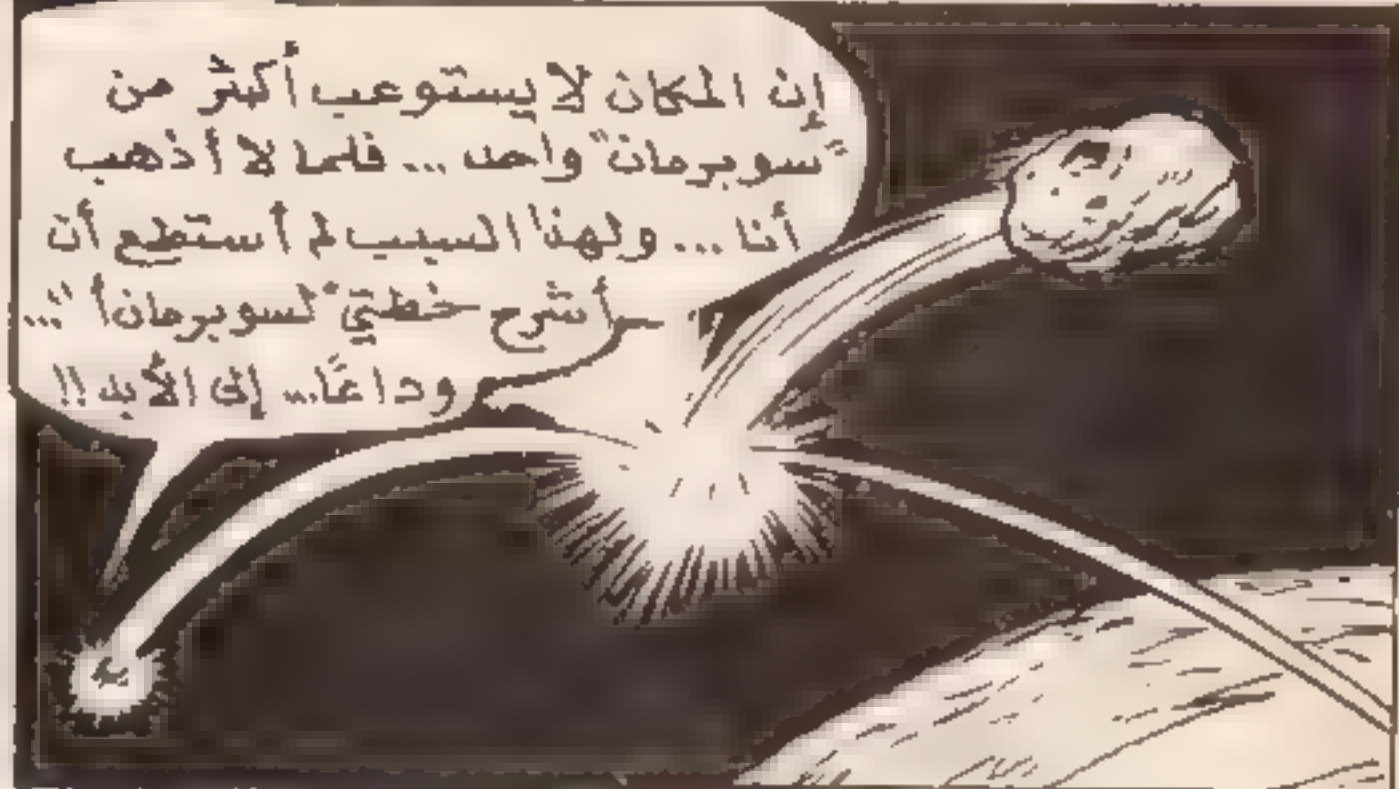 إن المكان لا يستوعب أكثر من
"سوبرمان" واحد ... فلما لا أذهب
أنا ... ولهذا السبب لم أستطع أن
أشرح خطتي "لسوبرمان أ" ...
وداعًا... إلى الأبد !!